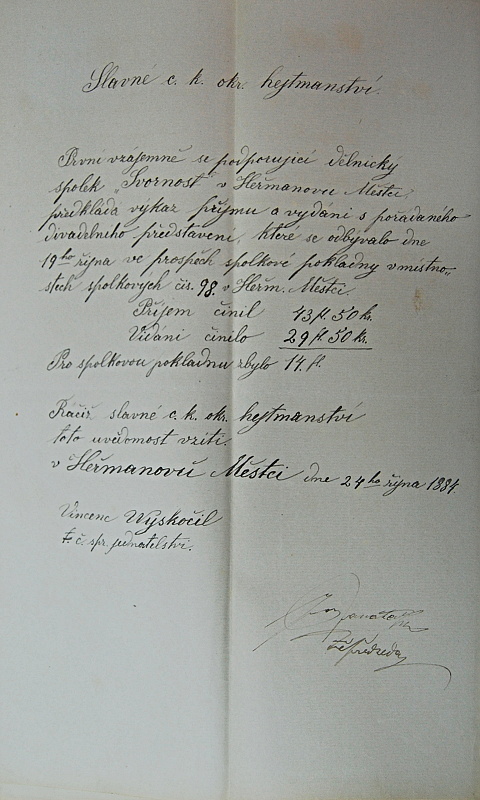 Slavné c. k. okr. hejtmanství.
První vzájemně se podporující dělnický
spolek „Svornost" v Heřmanovu Městci,
předkládá výkaz příjmu a vydání s pořádaného
divadelního představení, které se odbývalo dne
19ho října ve prospěch spolkové pokladny v místno-
stech spolkových čis. 98. v Heřm. Městci.
Příjem činil 43 fl. 50 kr.
Vidání činilo 29 fl. 50 kr.
Pro spolkovou pokladnu zbylo 14. fl.
Račiž slavné c. k. okr. hejtmanství
toto uvědomost vzíti.
v Heřmanovu Městci dne 24ho října 1884.
Vincenc Wyskočil
t. č. spr. jednatelství.
předseda